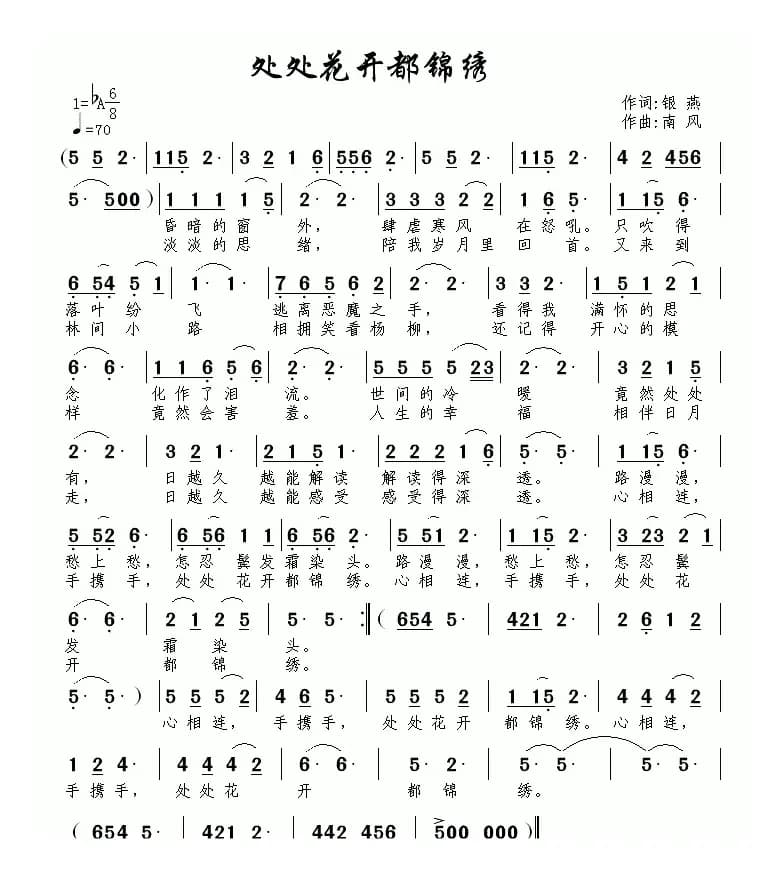 处处花开都锦绣
1=♭A 6/8
♩=70
作词:银 燕
作曲:南 风
(5 5 2· | 115 2· | 3 2 1 6 | 556 2· | 5 5 2· | 115 2· | 4 2 456
5· 500 ) | 1 1 1 1 5 | 2· 2· | 3 3 3 2 2 | 1 6 5· | 1 15 6·
昏暗的窗 外, 肆虐寒风 在怒吼。只吹得
淡淡的思 绪, 陪我岁月里 回 首。又来到
6 54 5 1 | 1· 1· | 7 6 5 6 2 | 2· 2· | 3 3 2· | 1 5 1 2 1
落叶纷 飞 逃离恶魔之 手, 看得我 满怀的思
林间小 路 相拥笑看杨 柳, 还记得 开心的模
6· 6· | 1 1 6 5 6 | 2· 2· | 5 5 5 5 23 | 2· 2· | 3 2 1 5
念 化作了泪 流。 世间的冷 暖 竟然处处
样 竟然会害 羞。 人生的幸 福 相伴日月
2· 2· | 3 2 1· | 2 1 5 1 | 2 2 2 1 6 | 5· 5· | 1 15 6·
有, 日越久 越能解读 解读得深 透。 路漫漫,
走, 日越久 越能感受 感受得深 透。 心相连,
5 52 6· | 6 56 1 1 | 6 56 2· | 5 51 2· | 1 15 2· | 3 23 2 1
愁上愁, 怎忍鬓发霜染头。路漫漫, 愁上愁, 怎忍鬓
手携手, 处处花开都锦绣。心相连, 手携手, 处处花
6· 6· | 2 1 2 5 | 5· 5· :‖ ( 654 5· | 421 2· | 2 6 1 2
发 霜染 头。
开 都锦 绣。
5· 5· ) | 5 5 5 2 | 4 6 5· | 5 5 5 2 | 1 15 2· | 4 4 4 2
心相连, 手携手, 处处花开 都锦 绣。心相连,
1 2 4· | 4 4 4 2 | 6· 6· | 5· 2· | 5· 5· | 5· 5·
手携手, 处处花 开 都 锦 绣。
( 654 5· | 421 2· | 442 456 | >500 000 ‖